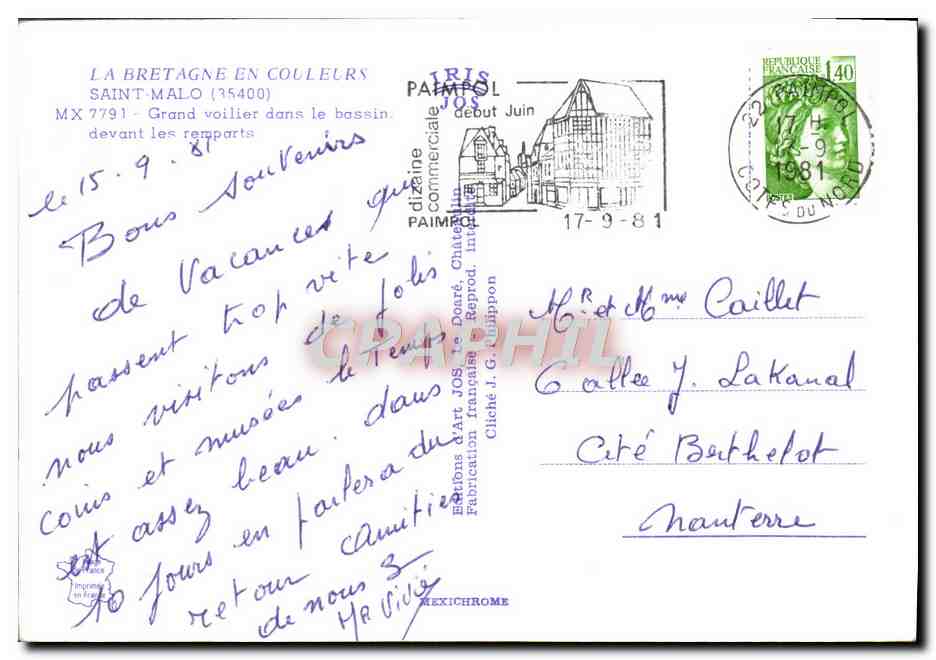 LA BRETAGNE EN COULEURS
SAINT-MALO (35400)
MX 7791 - Grand voilier dans le bassin
devant les remparts
IRIS
JOS
le 15.9.81
Bons souvenirs
de vacances qui
passent trop vite
nous visitons de jolis
coins et musées le temps
est assez beau. dans
10 jours en partera du
retour amitiés
de nous 3
PAIMPOL
début Juin
dizaine
commerciale
PAIMPOL
17-9-81
REPUBLIQUE
FRANÇAISE
1,40
POSTES
22 PAIMPOL
17 H
1981
COTES DU NORD
Editions d'Art JOS, Le Doaré, Châteaulin
Fabrication française - Reprod. interdite
Cliché J. G. Philippon
Mr et Mme Caillet
6 allée J. Lakanal
Cité Berthelot
Nanterre
France
Imprimée
en France
MEXICHROME
CPAPHIL